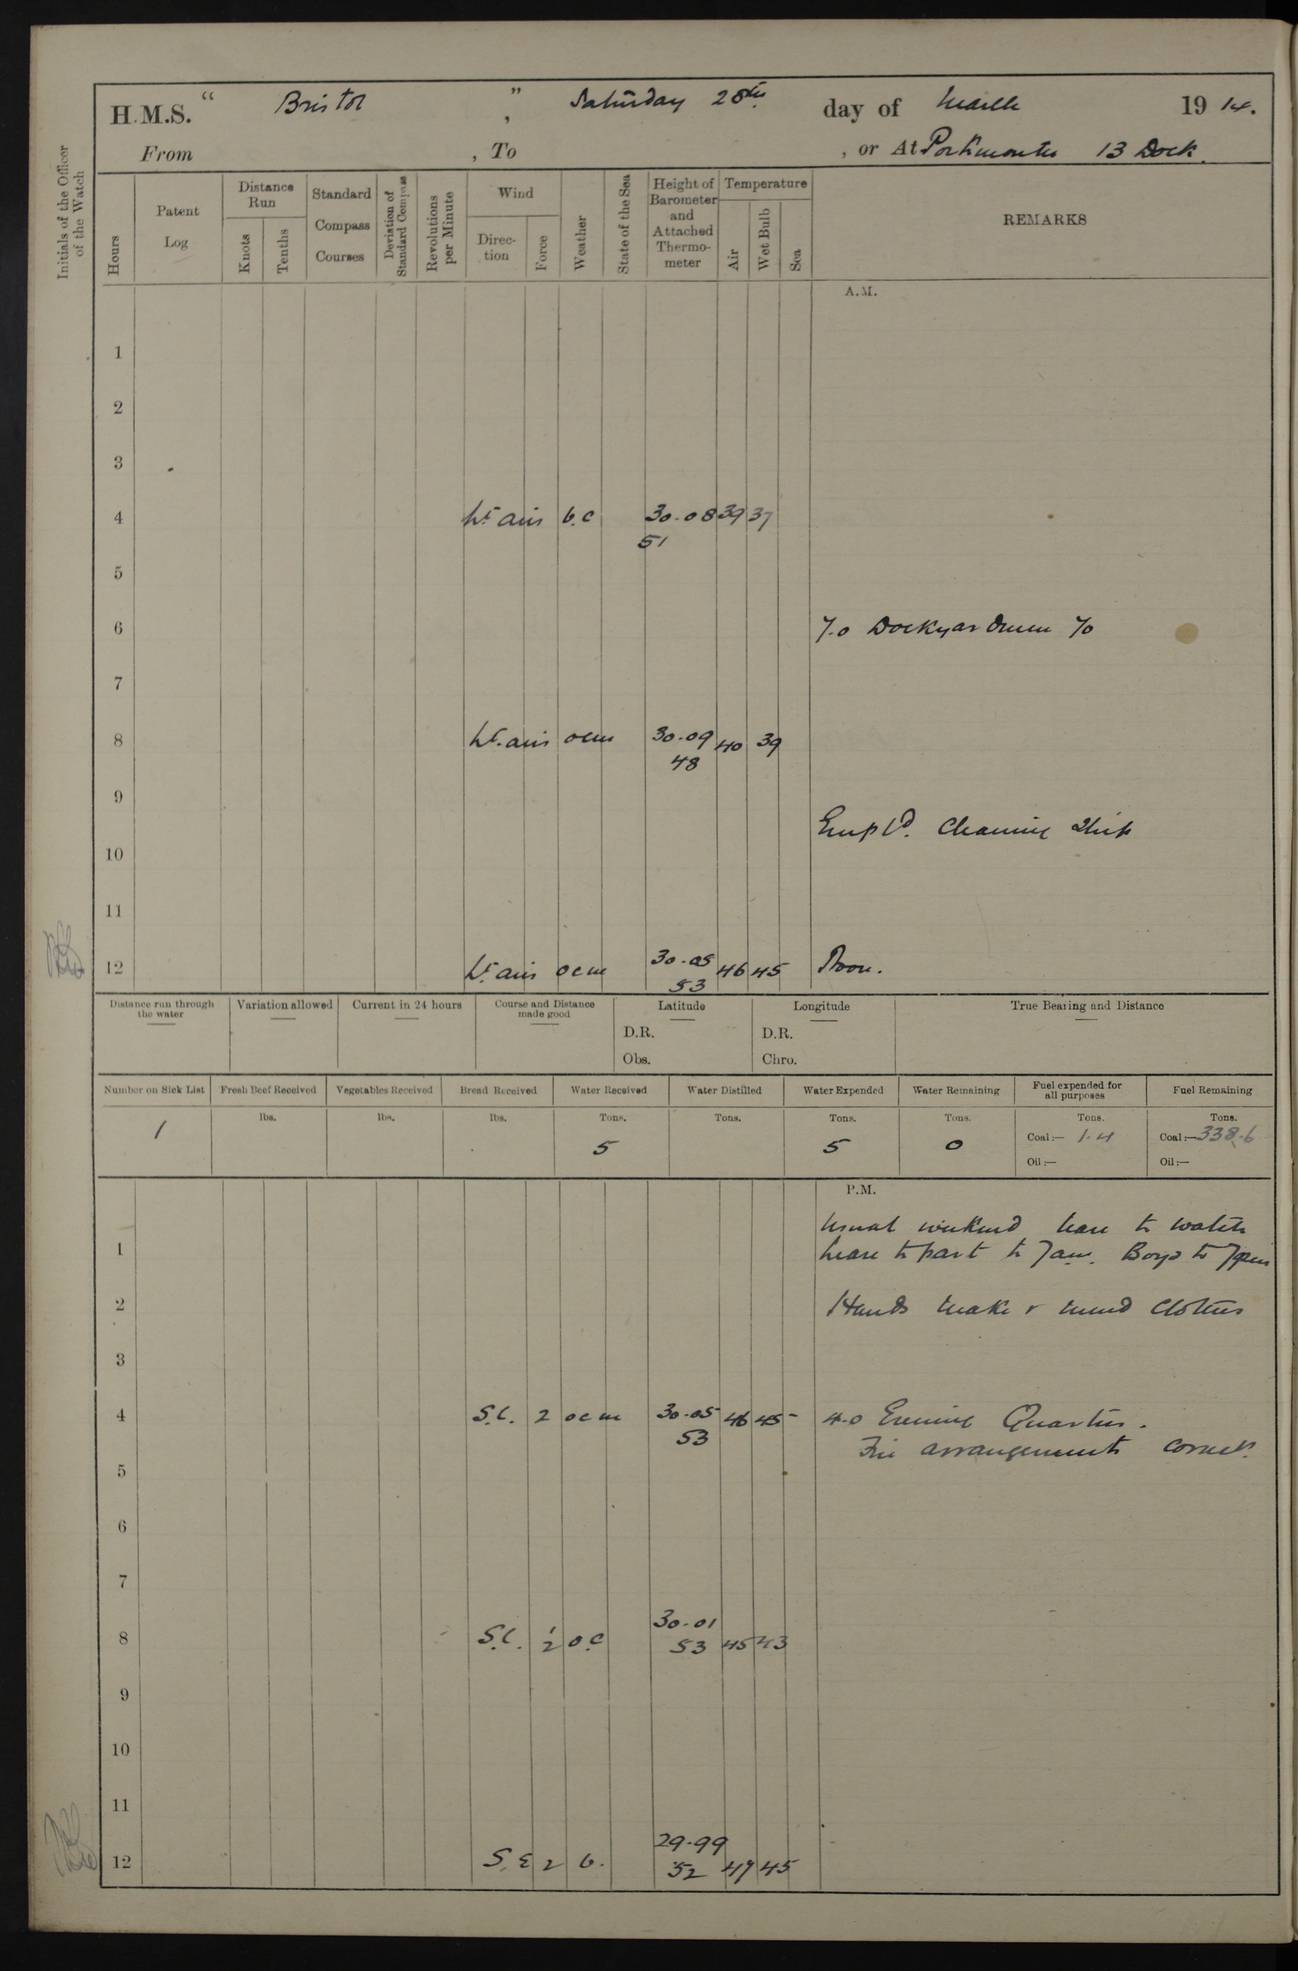 H.M.S. “ Bristol ”, Saturday 28th. day of March 1914.
From , To , or At Portsmouth 13 Dock.
Initials of the Officer of the Watch
Hours
Patent Log
Distance Run
Knots
Tenths
Standard Compass Courses
Deviation of Standard Compass
Revolutions per Minute
Wind
Direction
Force
Weather
State of the Sea
Height of Barometer and Attached Thermometer
Temperature
Air
Wet Bulb
Sea
REMARKS
A.M.
1
2
3
4 Lt airs b.c 30.08 39 37
51
5
6 7.0 Dockyardmen 70
7
8 Lt. airs ocm 30.09 40 39
48
9
Empld. Cleaning Ship
10
11
12 Lt. airs ocm 30.05 46 45 Noon.
53
Distance run through the water
Variation allowed
Current in 24 hours
Course and Distance made good
Latitude
D.R.
Obs.
Longitude
D.R.
Chro.
True Bearing and Distance
Number on Sick List
Fresh Beef Received
Vegetables Received
Bread Received
Water Received
Water Distilled
Water Expended
Water Remaining
Fuel expended for all purposes
Fuel Remaining
lbs. lbs. lbs. Tons. Tons. Tons. Tons. Tons. Tons.
1 5 5 0 Coal:— 1.4 Coal:— 338.6
Oil:— Oil:—
P.M.
Usual weekend leave to watch
1 Leave to part to 7am. Boys to 7pm
2 Hands make & mend clothes
3
4 2 ocm 30.05 46 45 4.0 Evening Quarters.
53 Fire arrangements correct.
5
6
7
8 30.01
1/2 o.c 53 45 43
9
10
11
12 S.E 2 b. 29.99
52 47 45